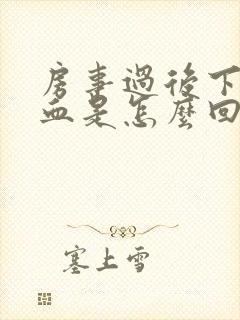 房事過後下
血是怎麼回
塞上雪